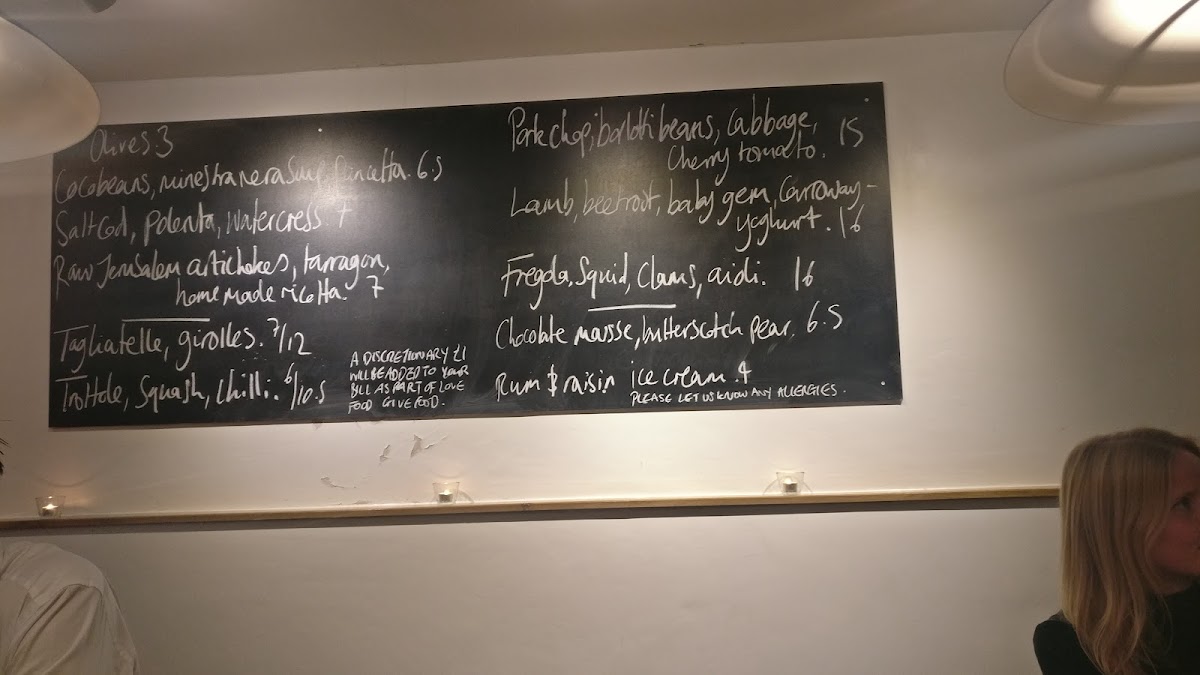 Olives. 3
Cocobeans, minestra nera soup, pancetta. 6.5
Salt Cod, polenta, watercress. 7
Raw Jerusalem artichokes, tarragon,
home made ricotta. 7
Tagliatelle, girolles. 7/12
Trottole, Squash, Chilli. 6/10.5
A DISCRETIONARY £1
WILL BE ADDED TO YOUR
BILL AS PART OF LOVE
FOOD GIVE FOOD.
Pork chop, borlotti beans, Cabbage,
Cherry tomato. 15
Lamb, beetroot, baby gem, Carroway-
yoghurt. 16
Fregola, Squid, Clams, aioli. 16
Chocolate mousse, butterscotch pear. 6.5
Rum & raisin ice cream. 4
PLEASE LET US KNOW ANY ALLERGIES.